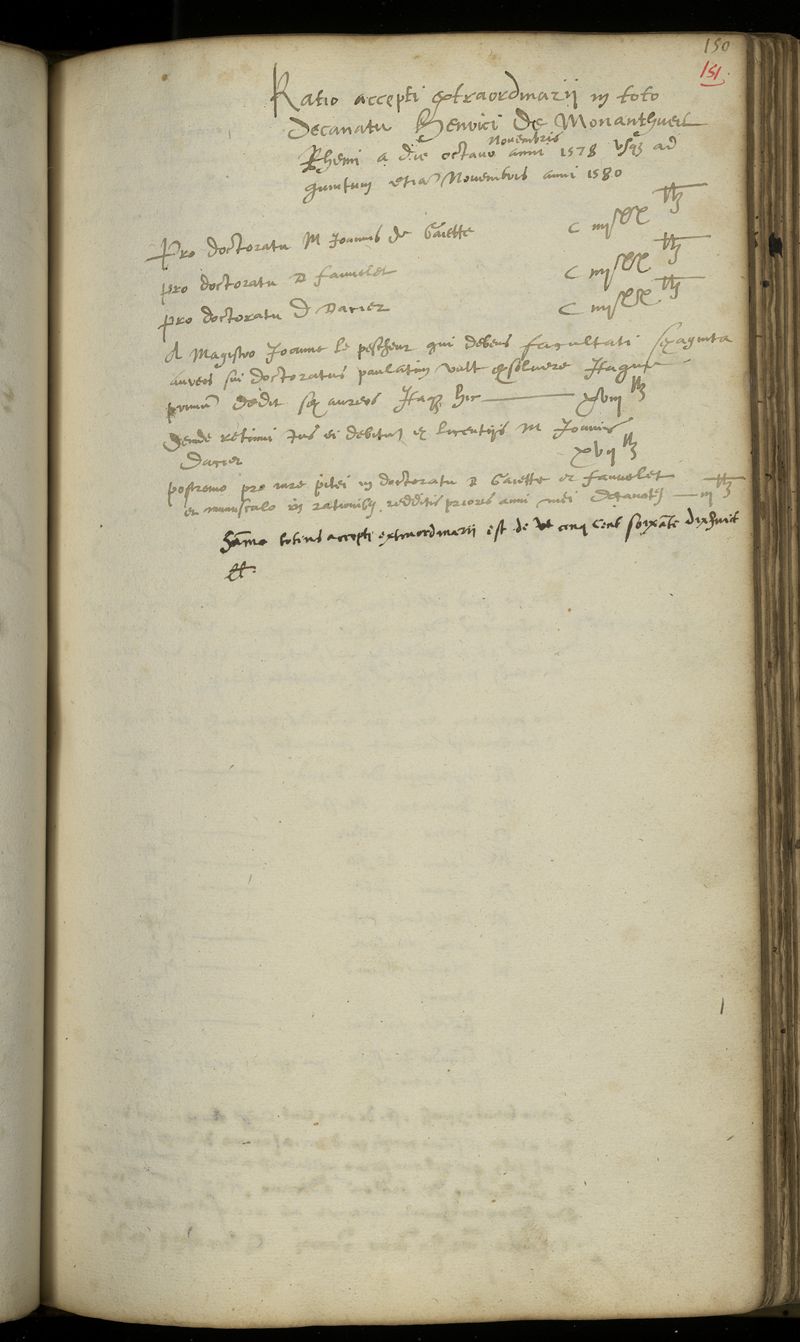 150
151
Ratio accepti extraordinarii in toto
decanatu Henrici De Monantheuil
Rhemi a die octavo Novembris anni 1578 usq ad
quintum etia Novembris anni 1580
Pro doctoratu M Joannis de Gaiette C iiij
pro doctoratu D fauvelet C iiij
pro doctoratu D Darier C iiij
A Magistro Joanne le pescheur qui debens facultati sexaginta
aureos sui doctoratus paulatim vult exsolvere Itaque
primu dedit sex aureos Itaq hic xviij
deinde retinui ius ei debitu ex licentijs M Joannis
Darier xvij
postremo pro iure pilei in doctoratu D Gaiette et fauvelet
in rationibus redditis prioris anni mei decanatus iij
Sama totius accepti extraordinarii est de cent soixante dixhuit